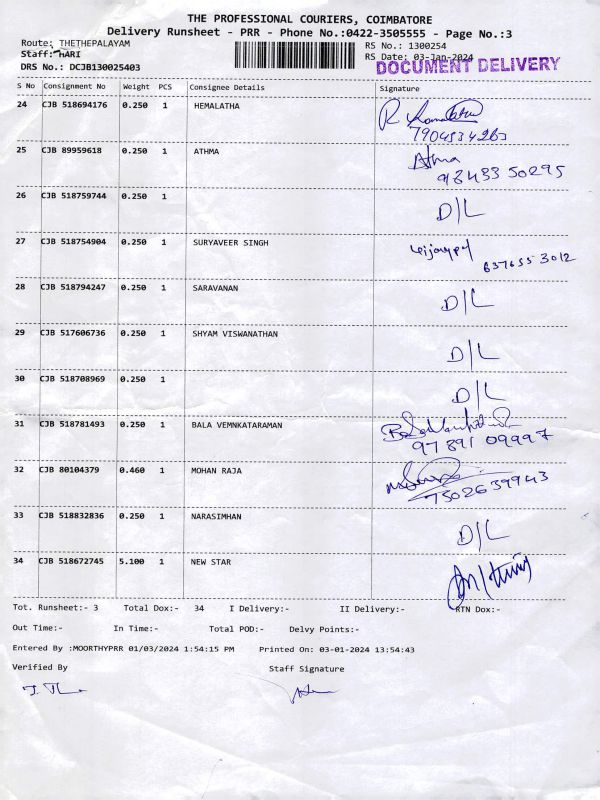 THE PROFESSIONAL COURIERS, COIMBATORE
Delivery Runsheet - PRR - Phone No.:0422-3505555 - Page No.:3
Route: THETHEPALAYAM
RS No.: 1300254
Staff: HARI
RS Date: 03-Jan-2024
DRS No.: DCJB130025403
DOCUMENT DELIVERY
S No Consignment No Weight PCS Consignee Details Signature
24 CJB 518694176 0.250 1 HEMALATHA
25 CJB 89959618 0.250 1 ATHMA Athma
98433 50295
26 CJB 518759744 0.250 1 D/L
27 CJB 518754904 0.250 1 SURYAVEER SINGH
637655 3012
28 CJB 518794247 0.250 1 SARAVANAN D/L
29 CJB 517606736 0.250 1 SHYAM VISWANATHAN D/L
30 CJB 518708969 0.250 1 D/L
31 CJB 518781493 0.250 1 BALA VEMNKATARAMAN
97891 09997
32 CJB 80104379 0.460 1 MOHAN RAJA
7502639943
33 CJB 518832836 0.250 1 NARASIMHAN D/L
34 CJB 518672745 5.100 1 NEW STAR
Tot. Runsheet:- 3 Total Dox:- 34 I Delivery:- II Delivery:- RTN Dox:-
Out Time:- In Time:- Total POD:- Delvy Points:-
Entered By :MOORTHYPRR 01/03/2024 1:54:15 PM Printed On: 03-01-2024 13:54:43
Verified By Staff Signature